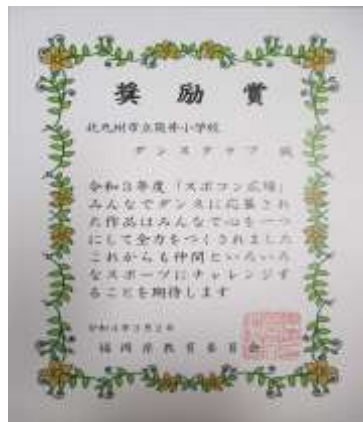 奨励賞
北九州市立筒井小学校
ダンスクラブ 殿
令和3年度「スポコン広場」
みんなでダンスに応募され
た作品はみんなで心を一つ
にして全力をつくされました
これからも仲間といろいろ
なスポーツにチャレンジす
ることを期待します
令和4年3月2日
福岡県教育委員会